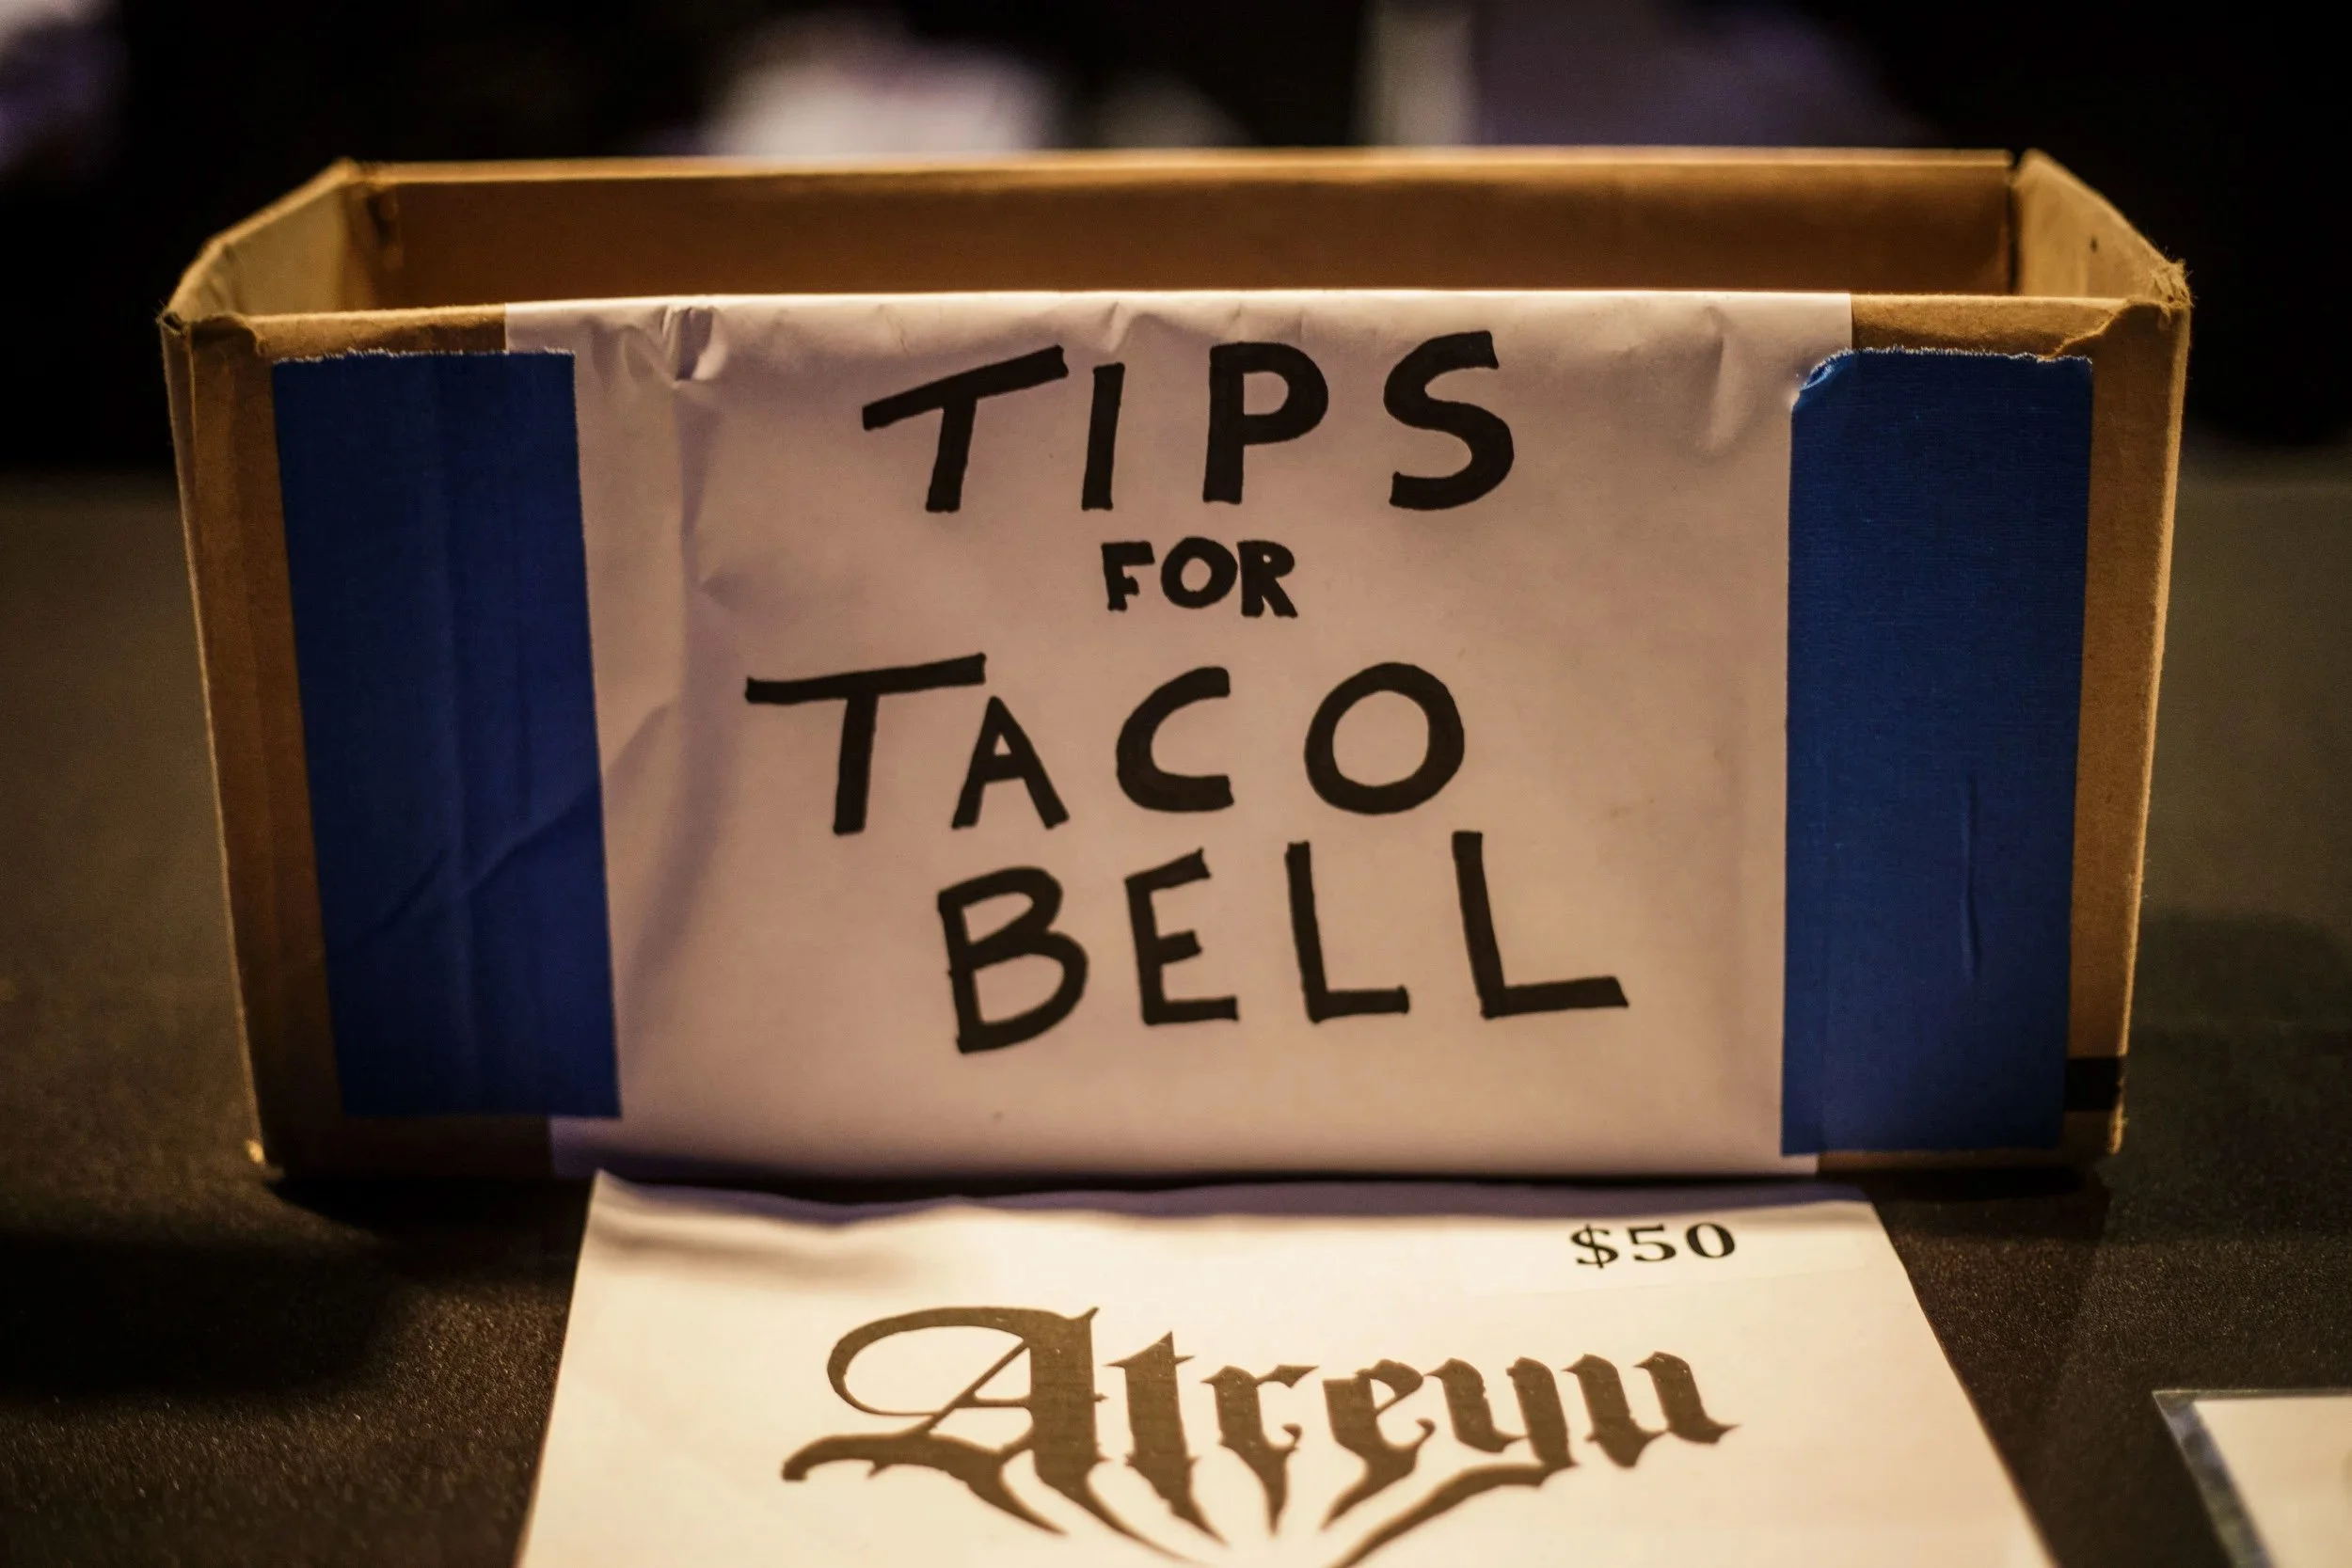 TIPS
FOR
TACO
BELL
$50
Atreyu